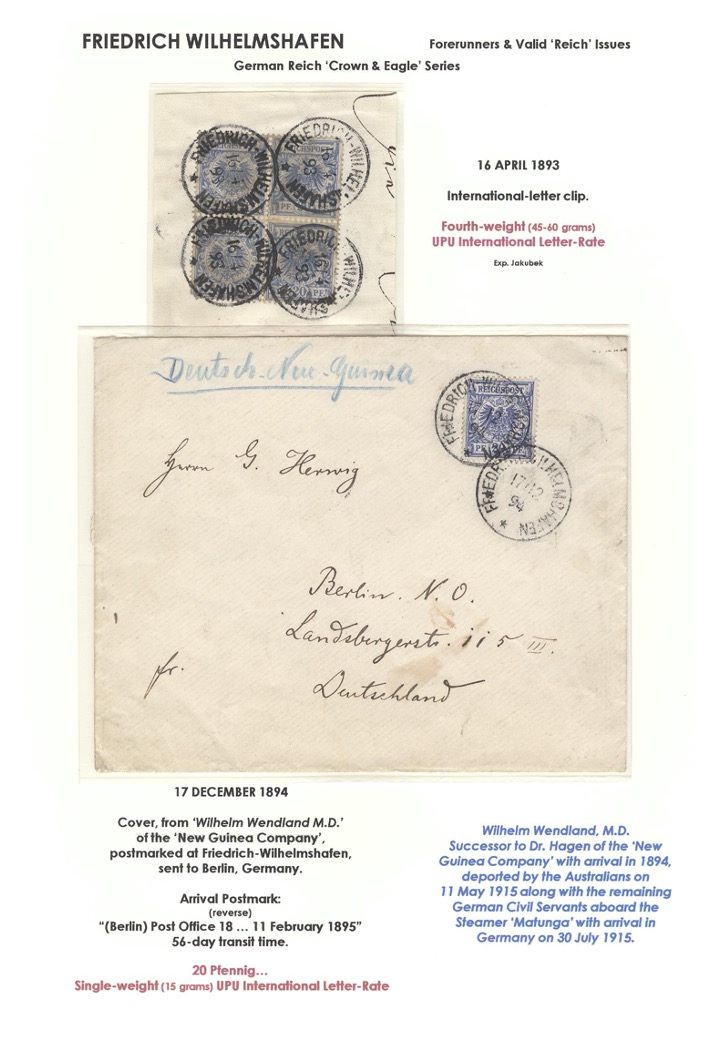 FRIEDRICH WILHELMSHAFEN
Forerunners & Valid ‘Reich’ Issues
German Reich ‘Crown & Eagle’ Series
FRIEDRICH-WILHELMSHAFEN
16 4
93
FRIEDRICH-WILHELMSHAFEN
16 4
93
FRIEDRICH-WILHELMSHAFEN
16 4
93
FRIEDRICH-WILHELMSHAFEN
16 4
93
16 APRIL 1893
International-letter clip.
Fourth-weight (45-60 grams)
UPU International Letter-Rate
Exp. Jakubek
Deutsch-Neu-Guinea
REICHSPOST
FRIEDRICH-WILHELMSHAFEN
FRIEDRICH-WILHELMSHAFEN
17 12
94
Herrn G. Herwig
Berlin. N. O.
Landsbergerstr. 115 III.
fr.
Deutschland
17 DECEMBER 1894
Cover, from ‘Wilhelm Wendland M.D.’
of the ‘New Guinea Company’,
postmarked at Friedrich-Wilhelmshafen,
sent to Berlin, Germany.
Arrival Postmark:
(reverse)
“(Berlin) Post Office 18 … 11 February 1895”
56-day transit time.
20 Pfennig…
Single-weight (15 grams) UPU International Letter-Rate
Wilhelm Wendland, M.D.
Successor to Dr. Hagen of the ‘New
Guinea Company’ with arrival in 1894,
deported by the Australians on
11 May 1915 along with the remaining
German Civil Servants aboard the
Steamer ‘Matunga’ with arrival in
Germany on 30 July 1915.